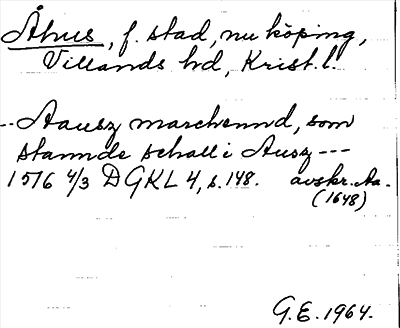 Åhus, f. stad, nu köping,
Villands hd, Krist. l.
-- Aausz marchennd, som
stannde schall i Ausz ---
1516 4/3 DGKL 4, s. 148. avskr. Aa.
(1648)
G.E. 1964.